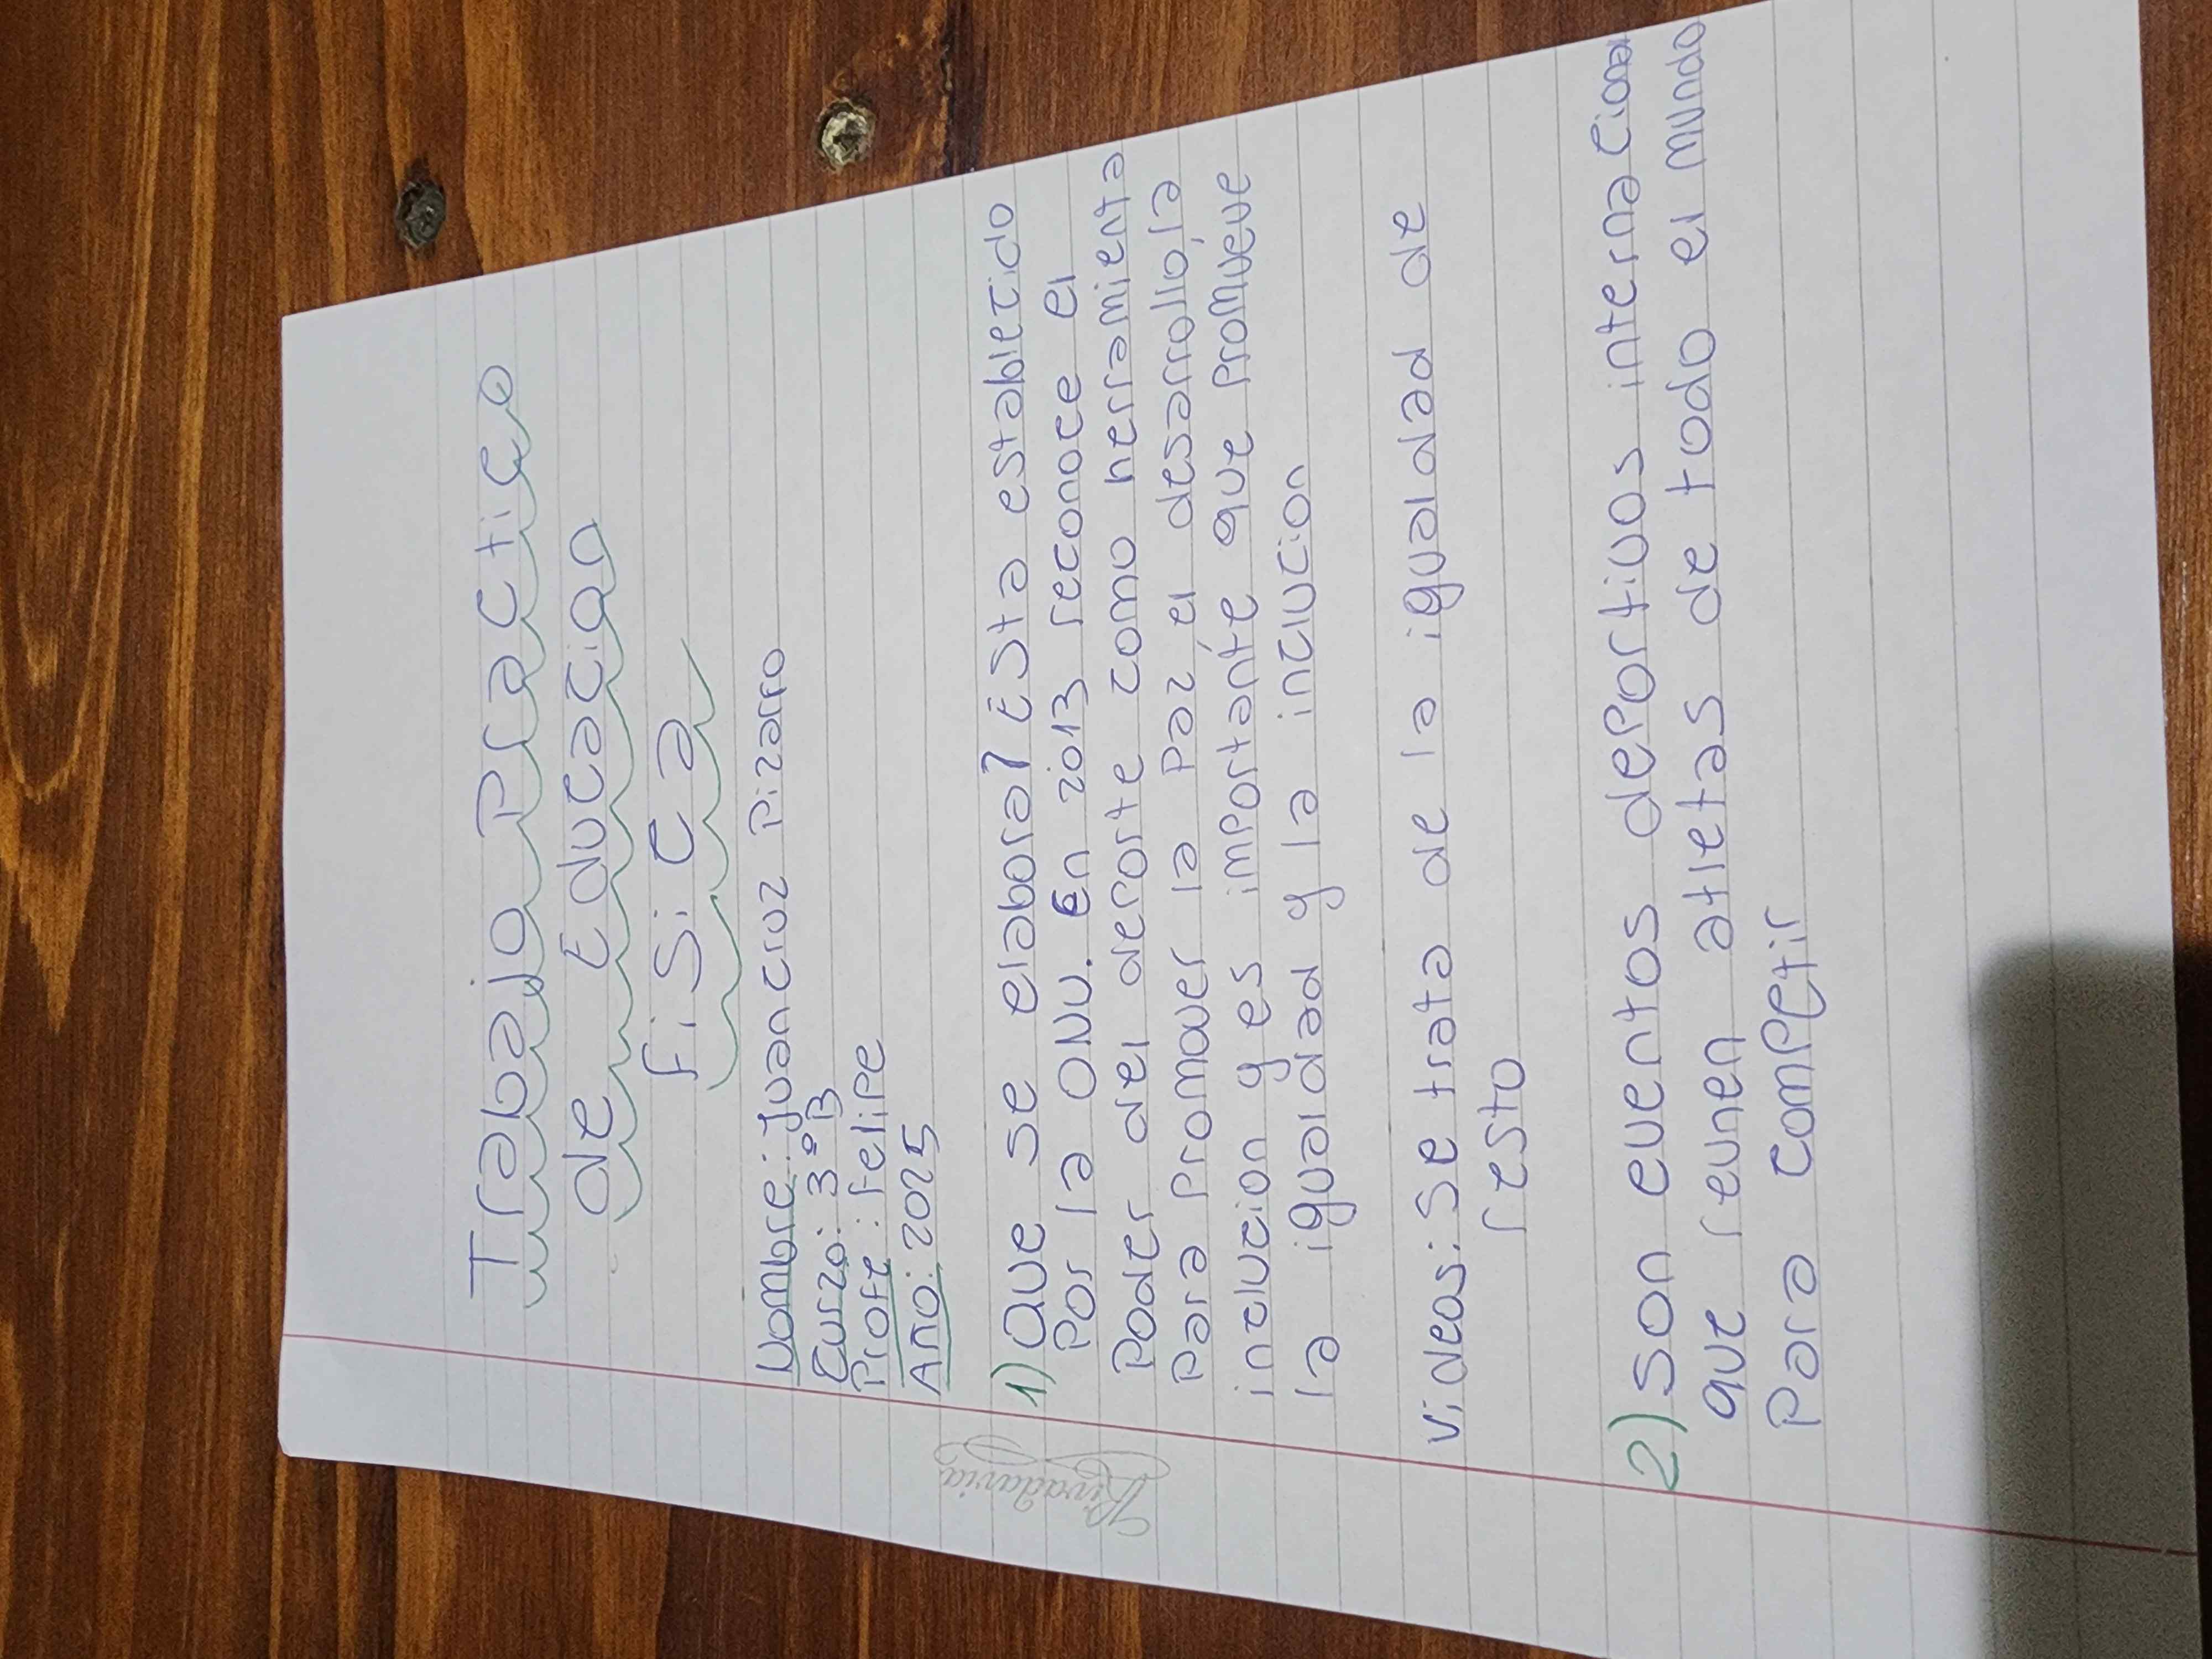 Trabajo Practico
de Educacion
Fisica
Nombre: Juan cruz Pizarro
Curzo: 3°B
Profe: felipe
Año: 2025
1) Que se elabora? Esta establecido
Por la ONU. En 2013 reconoce el
Poder del deporte como herramienta
Para Promover la Paz, el desarrollo, la
inclucion y es importante que Promueve
la igualdad y la inclucion
Rivadavia
Videos: Se trata de la igualdad de
resto
2) Son eventos deportivos internacional
que reunen atletas de todo el mundo
Para competir